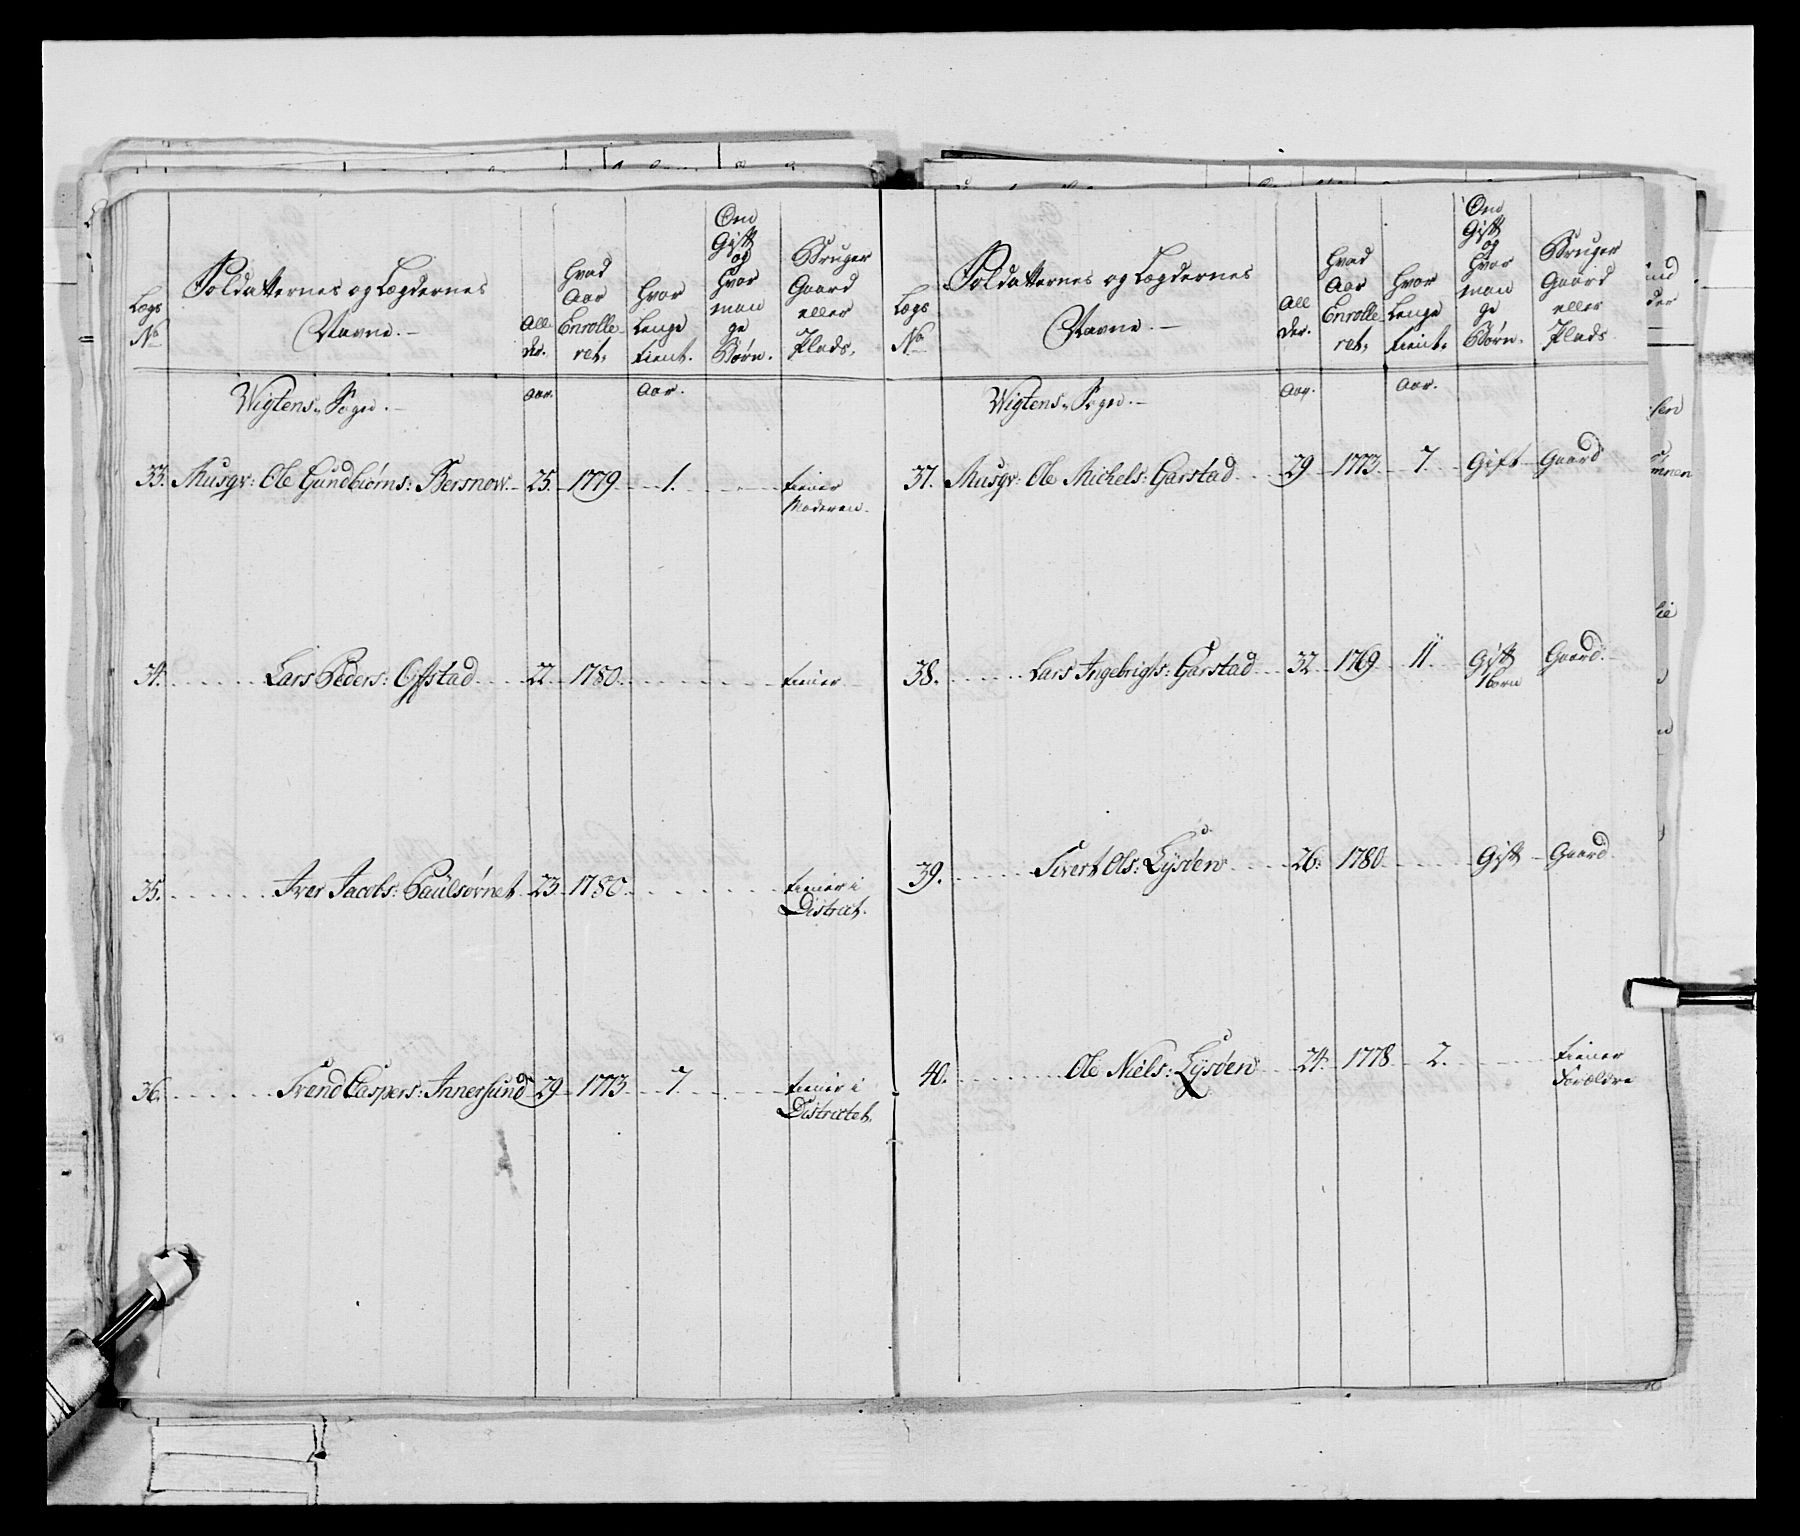 Lægs No
Soldatternes og Lægdernes Navne.
All der.
Hvad Aar Enrolleret.
Hvor Lenge tient.
Om Gift og Hvor mange Børn.
Bruger Gaard eller Plads.
Wigtens Sogn.
Aar.
Aar.
33. Musqr: Ole Gundbiørns: Bersnow 25. 1779 1. tiener Moderen.
34. Lars Peders: Ofstad 22. 1780. tiener
35. Iver Jacobs: Paulsørnet 23. 1780. tiener i District.
36. Trend Caspers: Innersund 29. 1773. 7. tiener i Districtet.
Lægs No
Soldatternes og Lægdernes Navne.
All der.
Hvad Aar Enrolleret.
Hvor Lenge tient.
Om Gift og Hvor mange Børn.
Bruger Gaard eller Plads.
Wigtens Sogn.
Aar.
Aar.
37. Musqr: Ole Michels: Garstad 29. 1773. 7. Gift Gaard
38. Lars Ingebrigts: Garstad 32. 1769. 11. Gift 1 barn Gaard.
39. Sivert Ols: Lysøen 26. 1780. Gift Gaard.
40. Ole Niels: Lysøen 24. 1778. 2. tiener Forældre